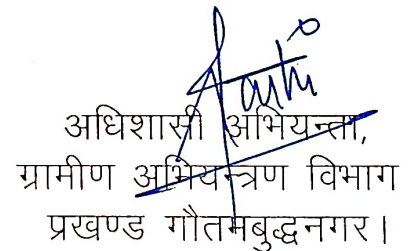 अधिशासी अभियन्ता,
ग्रामीण अभियन्त्रण विभाग
प्रखण्ड गौतमबुद्धनगर।